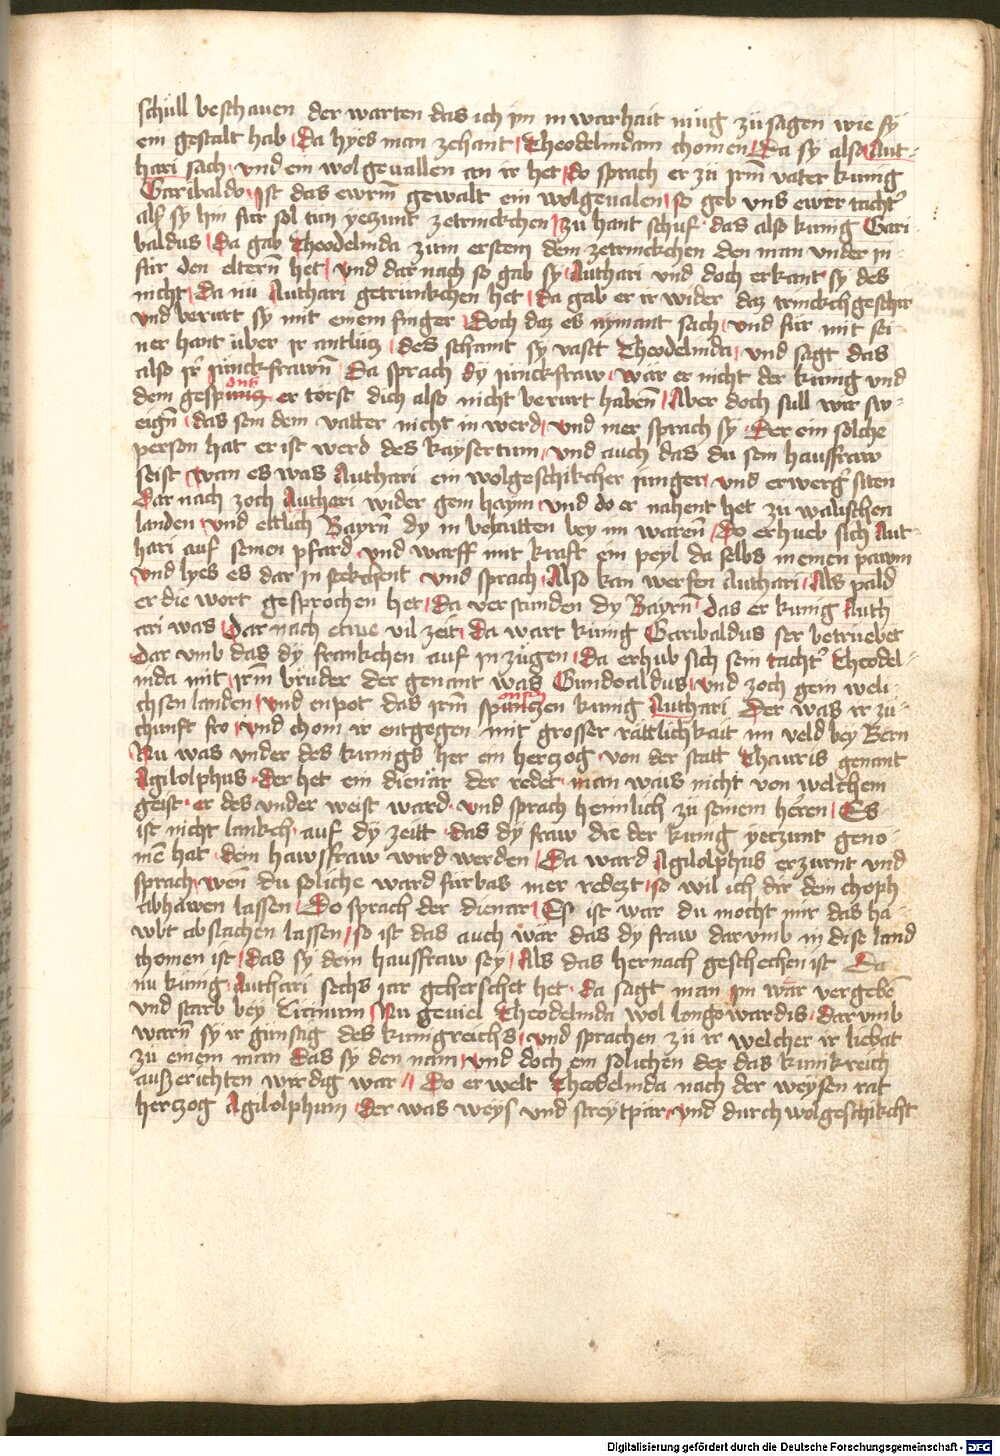 schüll beschauen der warten das ich im in warhait müg zu sagen wie sy
ein gestalt hab Da hyes man zehant Theodelindam chomen Da sy also Aut-
hari sach und ein wolgevallen an ir het Do sprach er zü irm̄ vater kunig
Garibaldo Ist das ewrm̄ gewalt ein wolgevalen so geb uns ewer tacht'
als sy hin für sol tun yeczunt zetrinckchen Zu hant schuf das also kunig Gari-
baldus Da gab Theodelinda zum ersten dem zetrinckchen den man under in
für den eltern̄ het und dar nach so gab sy Authari und doch erkant sy des
nicht Da nü Authari getrünkchen het Da gab er ir wider daz trinckchgeschir
und berürt sy mit einem finger Doch daz es nymant sach und für mit sei-
ner hant über ir antlütz des schamt sy vast Theodelinda und sagt das
also ir' junckfrawn̄ Da sprach dy junckfraw wär er nicht der kunig und
dein gespuntz ons er törst dich also nicht berurt haben Aber doch sull wir sw-
eign̄ das sein dem vatter nicht in werd und mer sprach sy Der ein solche
person hat er ist werd des kaysertum und auch das du sein hausfraw
seist wan es was Authari ein wolgeschikcher junger und erwerg' siten
Dar nach zoch Authari wider gein haym und do er nahent het zu walischen
landen und ettlich Bayrn̄ dy in belaitten bey im waren̄ Do erhueb sich Aut-
hari auf seinen pfärd und warff mit kraft ein peyl da selbs in einen pawm
und lyes es dar in stekchent und sprach Also kan werfen Authari Als pald
er die wort gesprochen het Da verstunden dy Bayrn̄ das er kunig Auth-
ari was Dar nach etwe vil zeit Da wart kunig Garibaldus ser betruebet
Dar umb das dy frankchen auf in zügen Da erhub sich sein tacht' Theodel-
inda mit irm̄ brüder der genant was Gundoaldus und zoch gein weli-
chsen landen und enpot das irm̄ spuntzen kunig Authari Der was ir zu-
chunft fro und chom ir entgegen mit grosser rättlichkait im veld bey Bern
Nu was under des kunigs her ein herczog von der statt Thauris genant
Agilolphus der het ein dienär der redet man wais nicht von welchem
geist er des under weist ward und sprach heimlich zü seinem herren Es
ist nicht lankch auf dy zeitt das dy fraw die der kunig yeczunt geno-
mē hat dein hawsfraw wird werden Da ward Agilolphus erzürnt und
sprach wen̄ du söliche ward fürbas mer redezt so wil ich dir dein choph
abhawen lassen Do sprach der dienar Es ist war du mocht mir das ha-
wbt abslachen lassen so ist das auch wär das dy fraw darumb in dise land
chomen ist das sy dein hausfraw sey Als das hernach geschechen ist Da
nu künig Authari sechs jar geherschet het da sagt man im war vergebē
und starb bey Ticinium Nu geviel Theodelinda wol longowardis darumb
warn̄ sy ir günstig des kunigreichs und sprachen zü ir welcher ir liebat
zu einem man das sy den näm und doch ein sölichen der das kunikreich
außerichten wirdig war Do erwelt Theodelinda nach der weysen rat
herczog Agilolphum der was weys und streytpär und durch wolgeschikcht
Digitalisierung gefördert durch die Deutsche Forschungsgemeinschaft - DFG